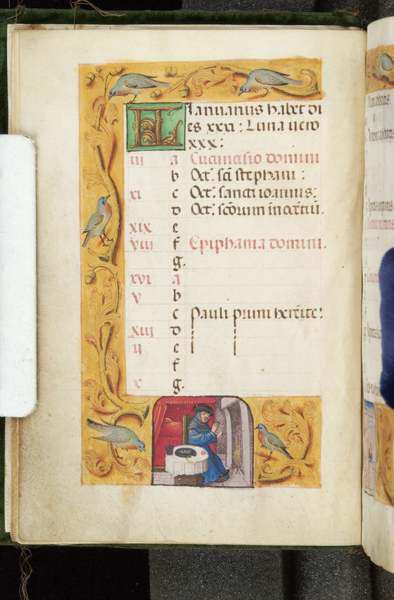 KL Januarius habet di
es xxxi: Luna vero
xxx:
iii a Circuncisio domini
b Oct. sci stephani:
xi c Oct. sancti ioannis:
d Oct. scorum innocentiu.
xix e
viii f Epiphania domini.
g.
xvi a
v b
c Pauli primi heremite:
xiii d
ii e
f
x g.